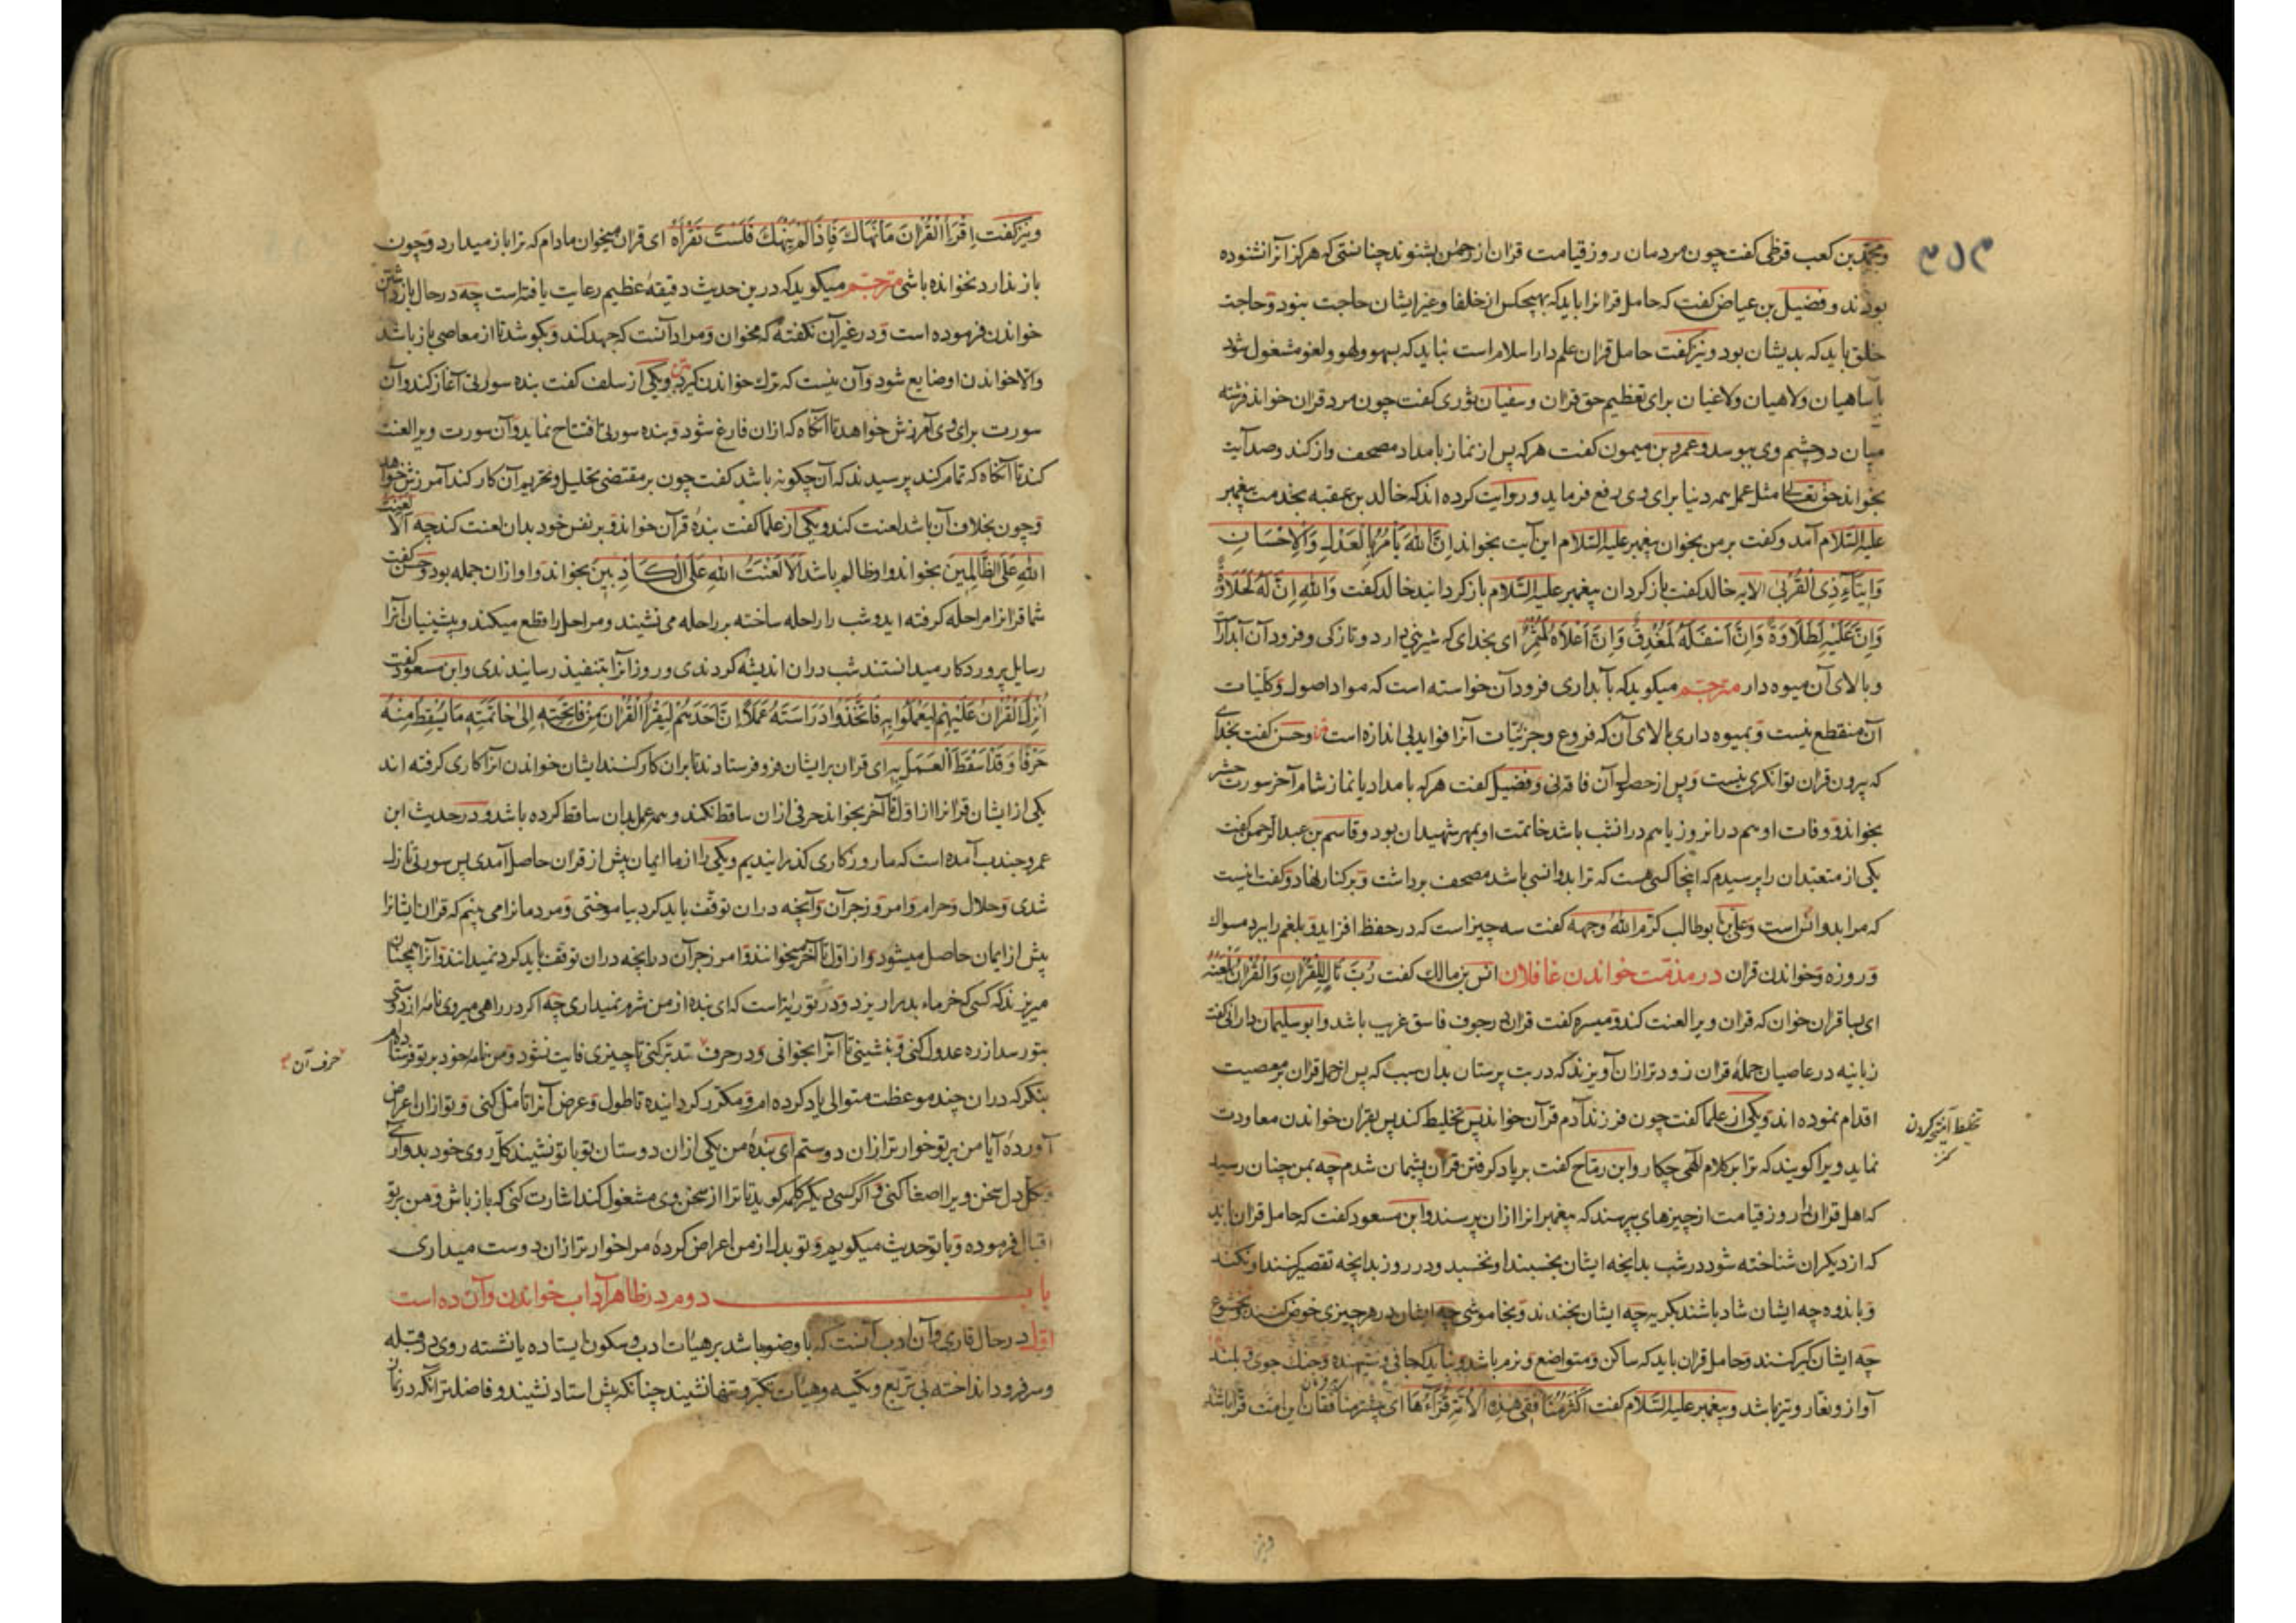 و محمد بن کعب قرظی گفت چون مردمان روز قیامت قران از رحمن بشنوند چنانستی که هرگز آنرا نشنوده
بودند و فضیل بن عیاض گفت که حامل قرانرا باید که بهیچکس از خلفا و غیر ایشان حاجت نبود و حاجت
خلق باید که بدیشان بود و نیز گفت حامل قران علم دار اسلام است نباید که بسهو و لهو و لغو مشغول شود
با ساهیان و لاهیان و لاغیان برای تعظیم حق قران و سفیان ثوری گفت چون مرد قران خواند فرشته
میان دو چشم وی ببوسد و عمرو بن میمون گفت هر که پس از نماز بامداد مصحف واز کند و صد آیت
بخواند حق تعالی مثل عمل همه دنیا برای وی رفع فرماید و روایت کرده اند که خالد بن عقبه بخدمت پیغمبر
علیه السلام آمد و گفت بر من بخوان پیغمبر علیه السلام این آیت بخواند اِنَّ اللّٰهَ یَأْمُرُ بِالْعَدْلِ وَالْاِحْسَانِ
وَاِیتَآءِ ذِی الْقُرْبٰی الایه خالد گفت باز گردان پیغمبر علیه السلام باز گردانید خالد گفت وَاللّٰهِ اِنَّ لَهُ لَحَلَاوَةً
وَاِنَّ عَلَیْهِ لَطَلَاوَةً وَاِنَّ اَسْفَلَهُ لَمُغْدِقٌ وَاِنَّ اَعْلَاهُ لَمُثْمِرٌ ای بخدای که شیرینی دارد و تازگی و فرود آن آبدار
و بالای آن میوه دار مترجم میگوید که بآبداری فرود آن خواسته است که مواد اصول و کلیات
آن منقطع نیست و بمیوه داری بالای آن که فروع و جزئیات آنرا فواید بی اندازه است و حسن گفت بخدای
که بیرون قران توانگری نیست و پس از حصول آن فاقه نی و فضیل گفت هر که بامداد یا نماز شام آخر سورت حشر
بخواند و وفات او هم در انروز یا هم در انشب باشد خاتمت او بمهر شهیدان بود و قاسم بن عبدالرحمن گفت
یکی از متعبدان را پرسیدم که اینجا کسی هست که ترا بدو انسی باشد مصحف برداشت و بر کنار نهاد و گفت اینست
که مرا بدو انس است و علی بن ابوطالب کرم الله وجهه گفت سه چیز است که در حفظ افزاید و بلغم را ببرد مسواک
و روزه و خواندن قران در مذمت خواندن غافلان انس بن مالک گفت رُبَّ تَالٍ لِلْقُرْاٰنِ وَالْقُرْاٰنُ یَلْعَنُهُ
ای بسا قران خوان که قران ویرا لعنت کند و میسره گفت قران در جوف فاسق غریب باشد و ابو سلیمان دارانی گفت
زبانیه در عاصیان حمله قران زودتر ازان آویزند که در بت پرستان بدان سبب که پس از حمل قران بر معصیت
اقدام نموده اند و یکی از علما گفت چون فرزند آدم قرآن خواند پس تخلیط کند پس بقران خواندن معاودت
تخلیط آمیختگی کردن
نماید ویرا گویند که ترا بر کلام الهی چکار و ابن رماح گفت بر یاد گرفتن قران پشیمان شدم چه بمن چنان رسید
که اهل قران را روز قیامت از چیزهای بپرسند که پیغمبرانرا ازان پرسند و ابن مسعود گفت که حامل قران باید
که از دیگران شناخته شود در شب بدانچه ایشان بخسبند او نخسبد و در روز بدانچه تقصیر کنند او نکند
و باندوه چه ایشان شاد باشند بگریه چه ایشان بخندند و بخاموشی چه ایشان در هر چیزی خوض کنند و بخشوع
چه ایشان کبر کنند و حامل قران باید که ساکن و متواضع و نرم باشد و نباید که جافی و ستیهنده و جنگ جوی و بلند
آواز و تیز باشد و پیغمبر علیه السلام گفت اَکْثَرُ مُنَافِقِی هٰذِهِ الْاُمَّةِ قُرَّآءُهَا ای بیشتر منافقان این امت قرا باشد
و نیز گفت اِقْرَأِ الْقُرْاٰنَ مَا نَهَاکَ فَاِذَا لَمْ یَنْهَکَ فَلَسْتَ تَقْرَأُهُ ای قران میخوان مادام که ترا باز میدارد و چون
باز ندارد نخوانده باشی مترجم میگوید که درین حدیث دقیقهٔ عظیم رعایت یافته است چه در حال باز داشتن
خواندن فرموده است و در غیر آن نگفته که مخوان و مراد آنست که جهد کند و بکوشد تا از معاصی باز باشد
والا خواندن او ضایع شود و آن نیست که ترک خواندن گیرد و یکی از سلف گفت بنده سورتی آغاز کند و آن
سورت برای وی آمرزش خواهد تا آنگاه که ازان فارغ شود و بنده سورتی افتتاح نماید و آن سورت ویرا لعنت
کند تا آنگاه که تمام کند پرسیدند که آن چگونه باشد گفت چون بر مقتضی تحلیل و تحریم آن کار کند آمرزش خواهد
و چون بخلاف آن باشد لعنت کند و یکی از علما گفت بنده قرآن خواند و بر نفس خود بدان لعنت کند چه اَلَا لَعْنَتُ
اللّٰهِ عَلَی الظَّالِمِینَ بخواند و او ظالم باشد اَلَا لَعْنَتُ اللّٰهِ عَلَی الْکَاذِبِینَ بخواند و او ازان جمله بود و حسن گفت
شما قرانرا مراحله گرفته اید و شب را راحله ساخته بر راحله می نشیند و مراحل را قطع میکند و پیشینیان آنرا
رسایل پروردگار میدانستند شب دران اندیشه کردندی و روز آنرا بتنفیذ رسانیدندی و ابن مسعود گفت
اُنْزِلَ الْقُرْاٰنُ عَلَیْهِمْ لِیَعْمَلُوا بِهِ فَاتَّخَذُوا دِرَاسَتَهُ عَمَلًا اِنَّ اَحَدَهُمْ لَیَقْرَأُ الْقُرْاٰنَ مِنْ فَاتِحَتِهِ اِلٰی خَاتِمَتِهِ مَا یُسْقِطُ مِنْهُ
حَرْفًا وَقَدْ اَسْقَطَ الْعَمَلَ بِهِ ای قران بر ایشان فرو فرستادند تا بران کار کنند ایشان خواندن آنرا کاری گرفته اند
یکی از ایشان قرانرا از اول تا آخر بخواند حرفی ازان ساقط نکند و همه عمل بدان ساقط کرده باشد و در حدیث ابن
عمر و جندب آمده است که ما روزگاری گذرانیدیم و یکی را از ما ایمان پیش از قران حاصل آمدی پس سورتی نازل
شدی و حلال و حرام و امر و زجر آن و آنچه دران توقف باید کرد بیاموختی و مردمانرا می بینم که قران ایشانرا
پیش از ایمان حاصل میشود و از اول تا آخر میخوانند و امر و زجر آن و آنچه دران توقف باید کرد نمیدانند و آنرا همچنان
میریزند که کسی خرماء بد را ریزد و در توریة است که ای بنده از من شرم نمیداری چه اگر در راهی میروی نامه از دوستی
بتو رسد از ره عدول کنی و بنشینی تا آنرا بخوانی و در حرف تدبر کنی تا چیزی فایت نشود و من نامه خود بر تو فرستادم
حرف آن
بنگر که دران چند موعظت متوالی یاد کرده ام و مکرر گردانیده تا طول و عرض آنرا تأمل کنی و تو ازان اعراض
آوردهٔ آیا من بر تو خوارتر ازان دوستم ای بندهٔ من یکی ازان دوستان تو با تو نشیند کل روی خود بدو آری
و بکل دل سخن ویرا اصغا کنی و اگر کسی دیگر کلمه گوید تا ترا از سخن وی مشغول کند اشارت کنی که باز باش و من بر تو
اقبال فرموده و با تو حدیث میگویم و تو بدل از من اعراض کردهٔ مرا خوارتر ازان دوست میداری
باب دوم در ظاهر آداب خواندن و آن ده است
اول در حال قاری و آن ادب آنست که با وضو باشد بر هیات ادب و سکون ایستاده یا نشسته روی در قبله
و سر فرود انداخته نی تربع و تکیه و هیات تکبر و تنها نشیند چنانکه پیش استاد نشیند و فاضلتر آنکه در نماز